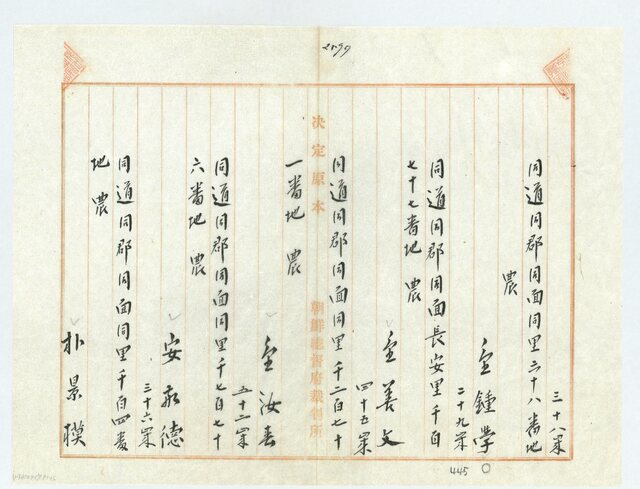 2599
三十八歲
同道同郡同面同里六十八番地
農
金鍾學
二十九歲
同道同郡同面長安里千百
七十七番地 農
金善文
四十五歲
決定原本 朝鮮總督府裁判所
同道同郡同面同里千二百七十
一番地 農
金汝春
五十二歲
同道同郡同面同里千七百七十
六番地 農
安永德
三十六歲
同道同郡同面同里千百四番
地 農
朴景模
445